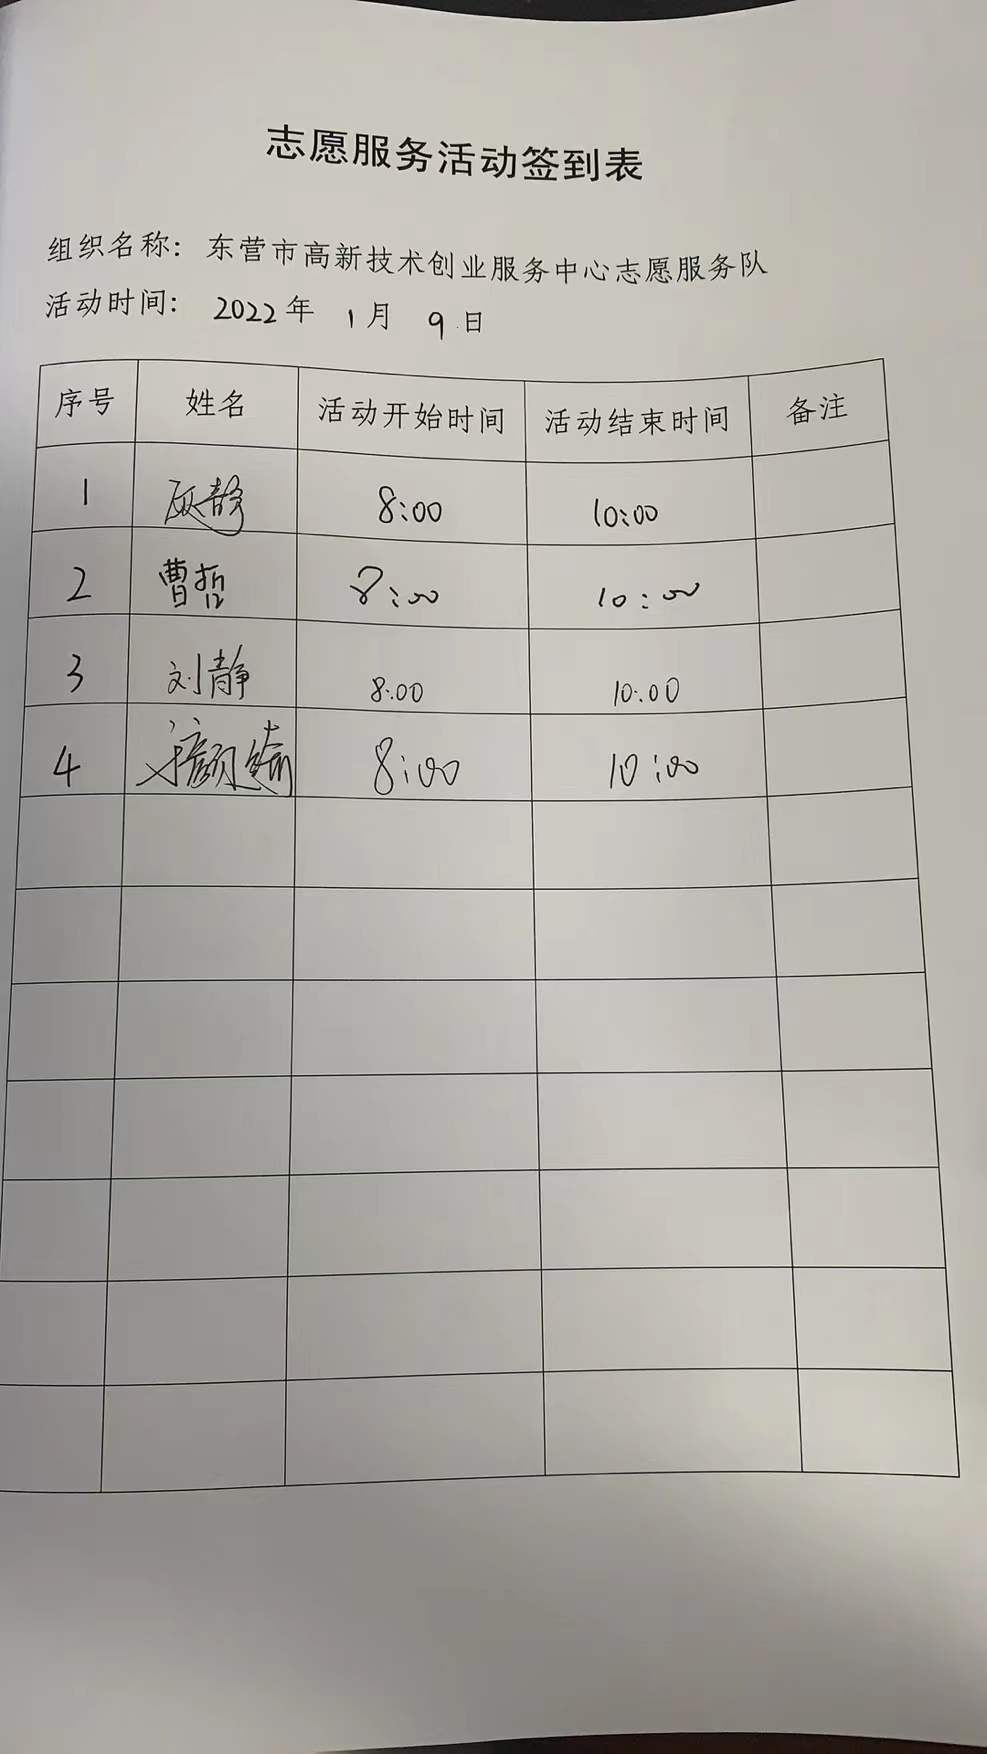 志愿服务活动签到表
组织名称: 东营市高新技术创业服务中心志愿服务队
活动时间: 2022年 1月 9日
序号 姓名 活动开始时间 活动结束时间 备注
1 8:00 10:00
2 曹哲 8:00 10:00
3 刘静 8:00 10:00
4 8:00 10:00